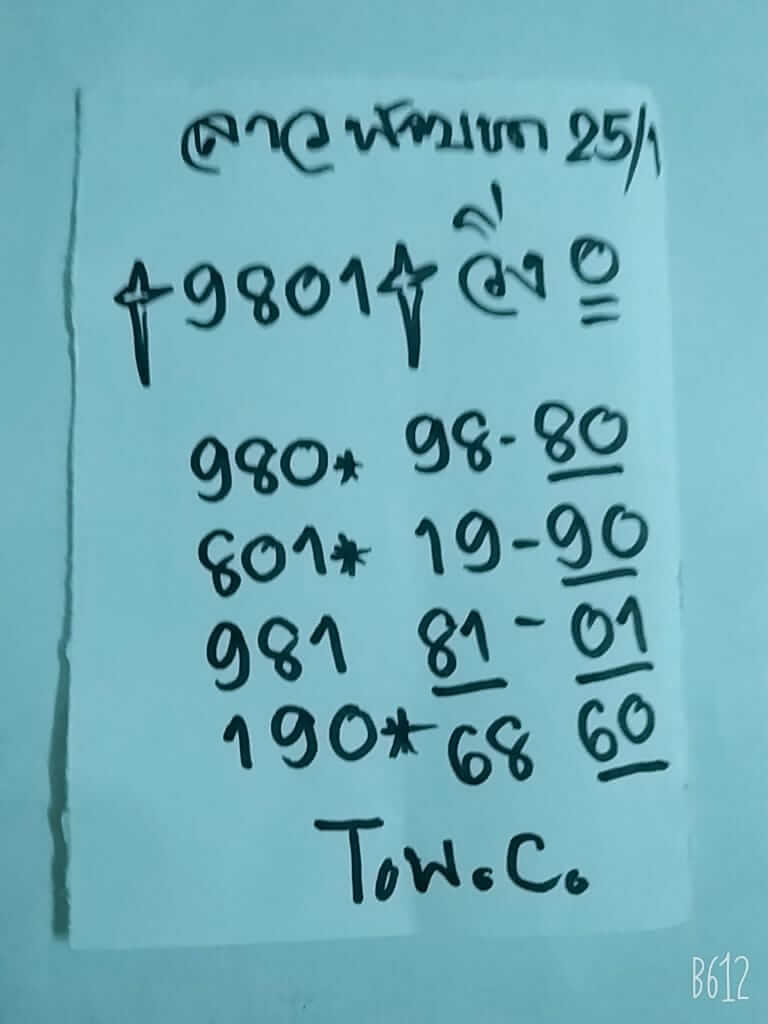 ลาวพัฒนา 25/1
9801 วิ่ง 0
980* 98-80
801* 19-90
981 81-01
190* 68 60
T.W.C.
B612